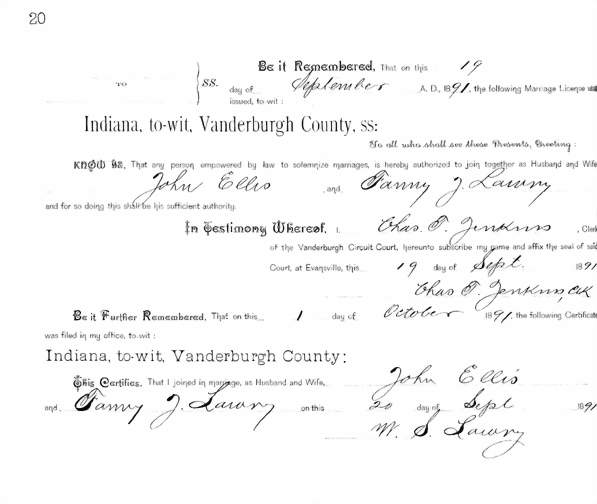 20
Be it Remembered, That on this 19
TO
SS.
day of September A. D., 1891, the following Marriage License was
issued, to wit :
Indiana, to-wit, Vanderburgh County, ss:
To all who shall see these Presents, Greeting :
KNOW YE, That any person empowered by law to solemnize marriages, is hereby authorized to join together as Husband and Wife
John Ellis and Fanny J. Lawry
and for so doing this shall be his sufficient authority.
In Testimony Whereof, I, Chas. T. Jenkins, Clerk
of the Vanderburgh Circuit Court, hereunto subscribe my name and affix the seal of said
Court, at Evansville, this 19 day of Sept. 1891
Chas T. Jenkins, Clk
Be it Further Remembered, That on this 1 day of October 1891, the following Certificate
was filed in my office, to-wit :
Indiana, to-wit, Vanderburgh County:
This Certifies, That I joined in marriage, as Husband and Wife, John Ellis
and Fanny J. Lawry on this 20 day of Sept 1891
W. S. Lawry